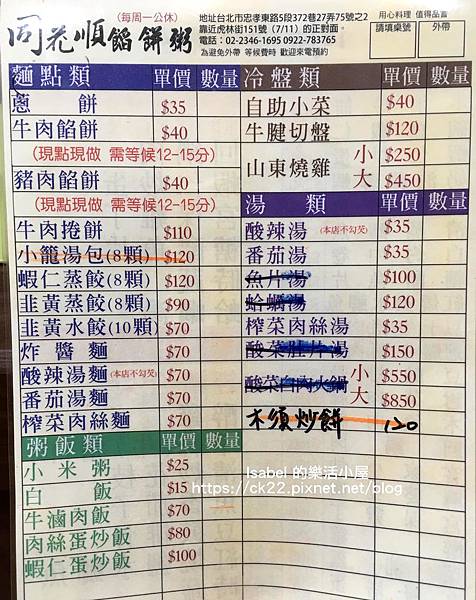 同花順餡餅粥
(每周一公休)
地址台北市忠孝東路5段372巷27弄75號之2
靠近虎林街151號（7/11）的正對面。
電話：02-2346-1695 0922-783765
為避免外帶 等候費時 歡迎來電預約
用心料理 值得品嘗
請填桌號 外帶
麵點類 單價 數量
蔥餅 $35
牛肉餡餅 $40
(現點現做 需等候12-15分)
豬肉餡餅 $40
(現點現做 需等候12-15分)
牛肉捲餅 $110
小籠湯包(8顆) $120
蝦仁蒸餃(8顆) $120
韭黃蒸餃(8顆) $90
韭黃水餃(10顆) $70
炸醬麵 $70
酸辣湯麵(本店不勾芡) $70
番茄湯麵 $70
榨菜肉絲麵 $70
粥飯類 單價 數量
小米粥 $25
白飯 $15
牛滷肉飯 $70
肉絲蛋炒飯 $80
蝦仁蛋炒飯 $100
冷盤類 單價 數量
自助小菜 $40
牛腱切盤 $120
山東燒雞 小 $250
大 $450
湯類 單價 數量
酸辣湯(本店不勾芡) $35
番茄湯 $35
魚片湯 $100
蛤蠣湯 $120
榨菜肉絲湯 $35
酸菜肚片湯 $150
酸菜白肉火鍋 小 $550
大 $850
木須炒餅 120
Isabel 的樂活小屋
https://ck22.pixnet.net/blog